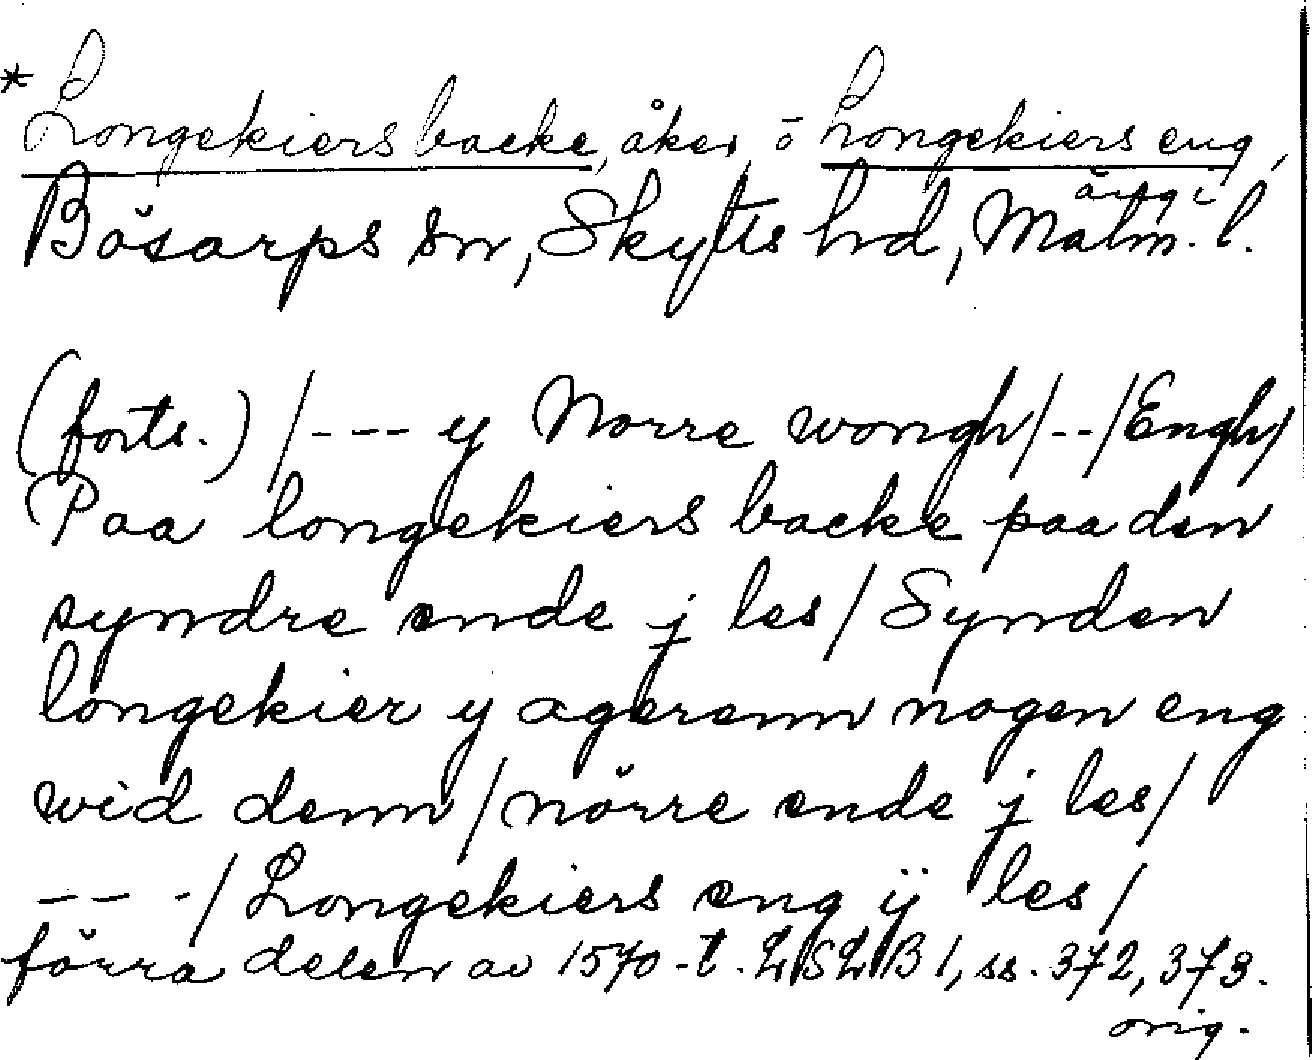 * Longekiers backe, åker, o Longekiers eng,
äng i
Bösarps sn, Skytts hd, Malm. l.
(forts.) /--- y Norre wongh/--/Engh/
Paa longekiers backe paa den
syndre ende j les/ Synden
longekier y agerenn nogen eng
wid denn/nörre ende j les/
-- -/ Longekiers eng ij les/
förra delen av 1570-t. LSLB 1, ss. 372, 373.
orig.